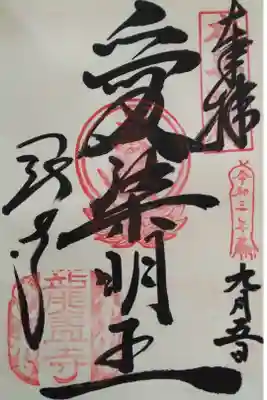 奉拝
令和三年
九月五日
愛染明王
龍蓋寺